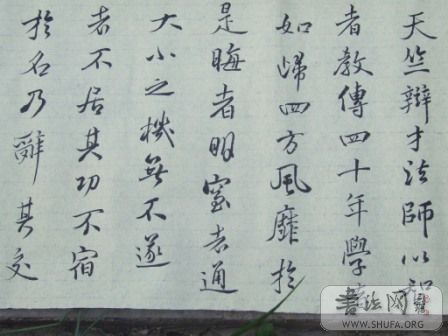 天竺辯才法師以智
者教傳四十年學者
如歸四方風靡於
是晦者明窒者通
大小之機無不遂
者不居其功不宿
於名乃辭其交
書法网
WWW.SHUFA.ORG